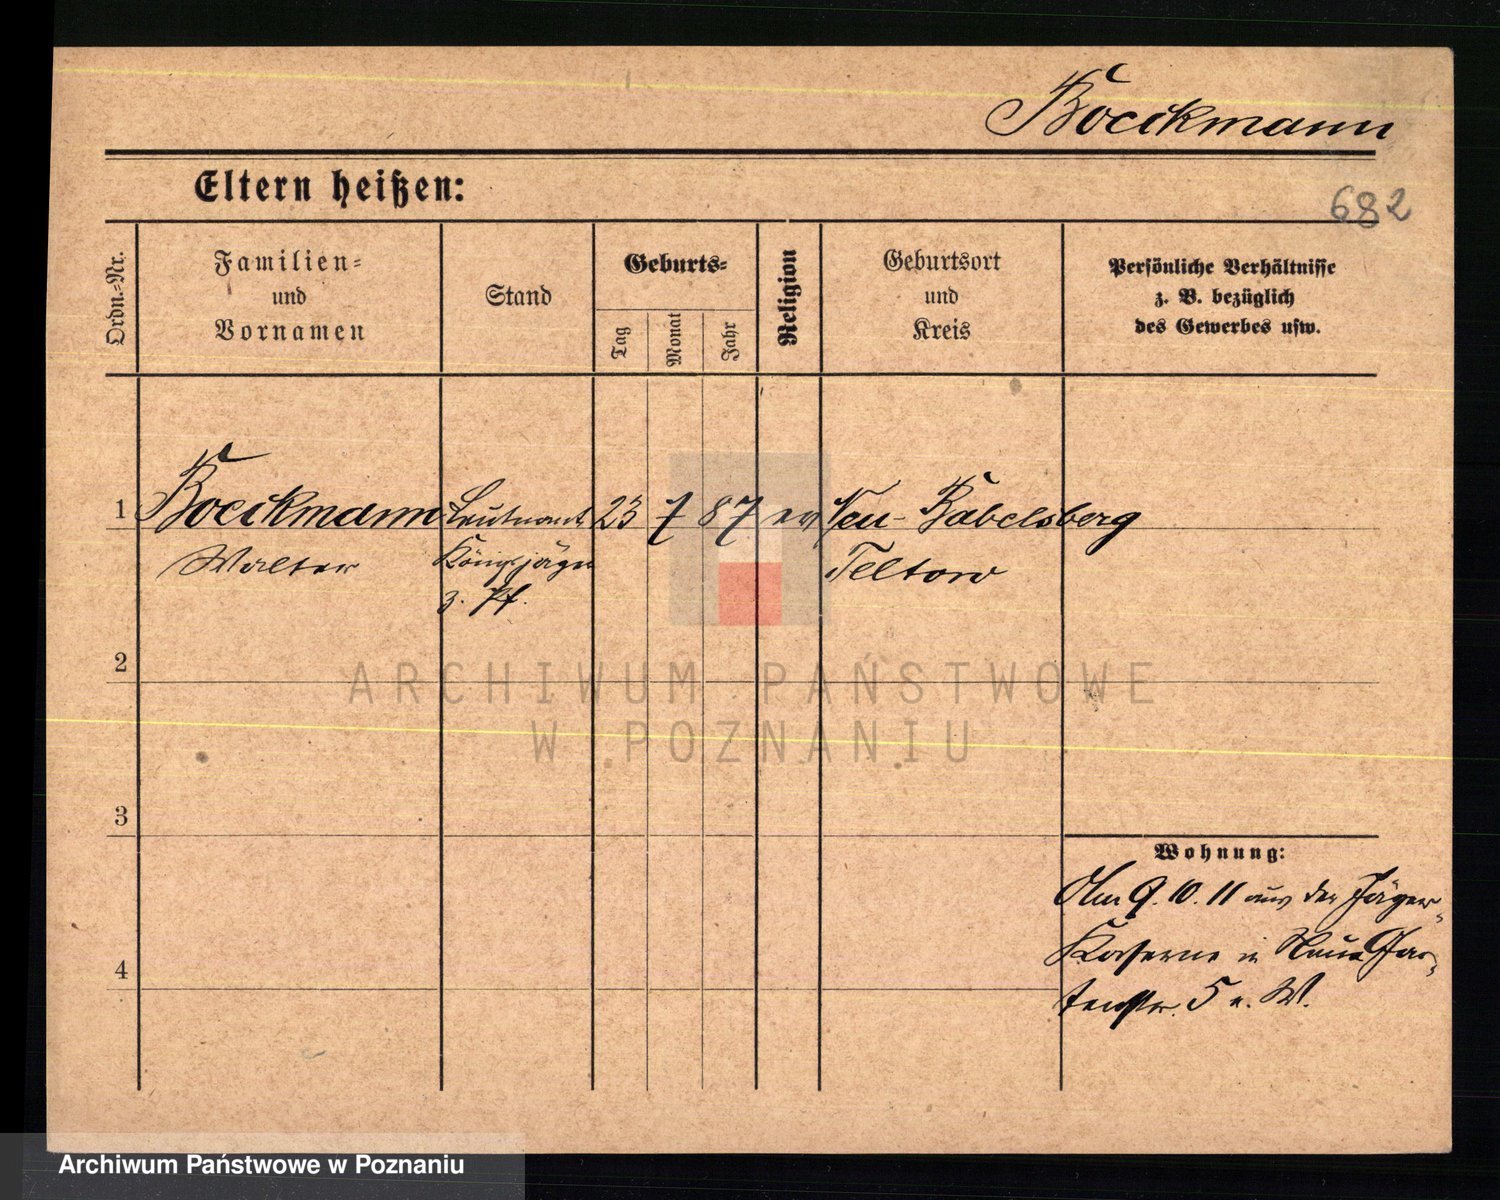 Boeckmann
Eltern heißen:
682
Ordn.-Nr.
Familien-
und
Vornamen
Stand
Geburts-
Tag
Monat
Jahr
Religion
Geburtsort
und
Kreis
Persönliche Verhältnisse
z. B. bezüglich
des Gewerbes usw.
1 Boeckmann Leutnant 23 7 87. ev Neu-Babelsberg
Walter Königsjäger Teltow
z. Pf.
2
ARCHIWUM PAŃSTWOWE
W POZNANIU
3
Wohnung:
Am 9.10.11 aus der Jäger-
Kaserne in Neue Gar-
4
tenstr. 5 v. W.
Archiwum Państwowe w Poznaniu